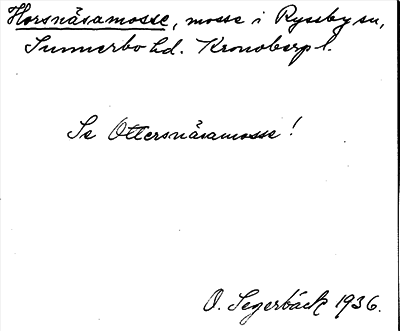 Horsnäsamosse, mosse i Ryssby sn,
Sunnerbo hd. Kronobergs l.
Se Ottersnäsamosse!
O. Segerbäck 1936.